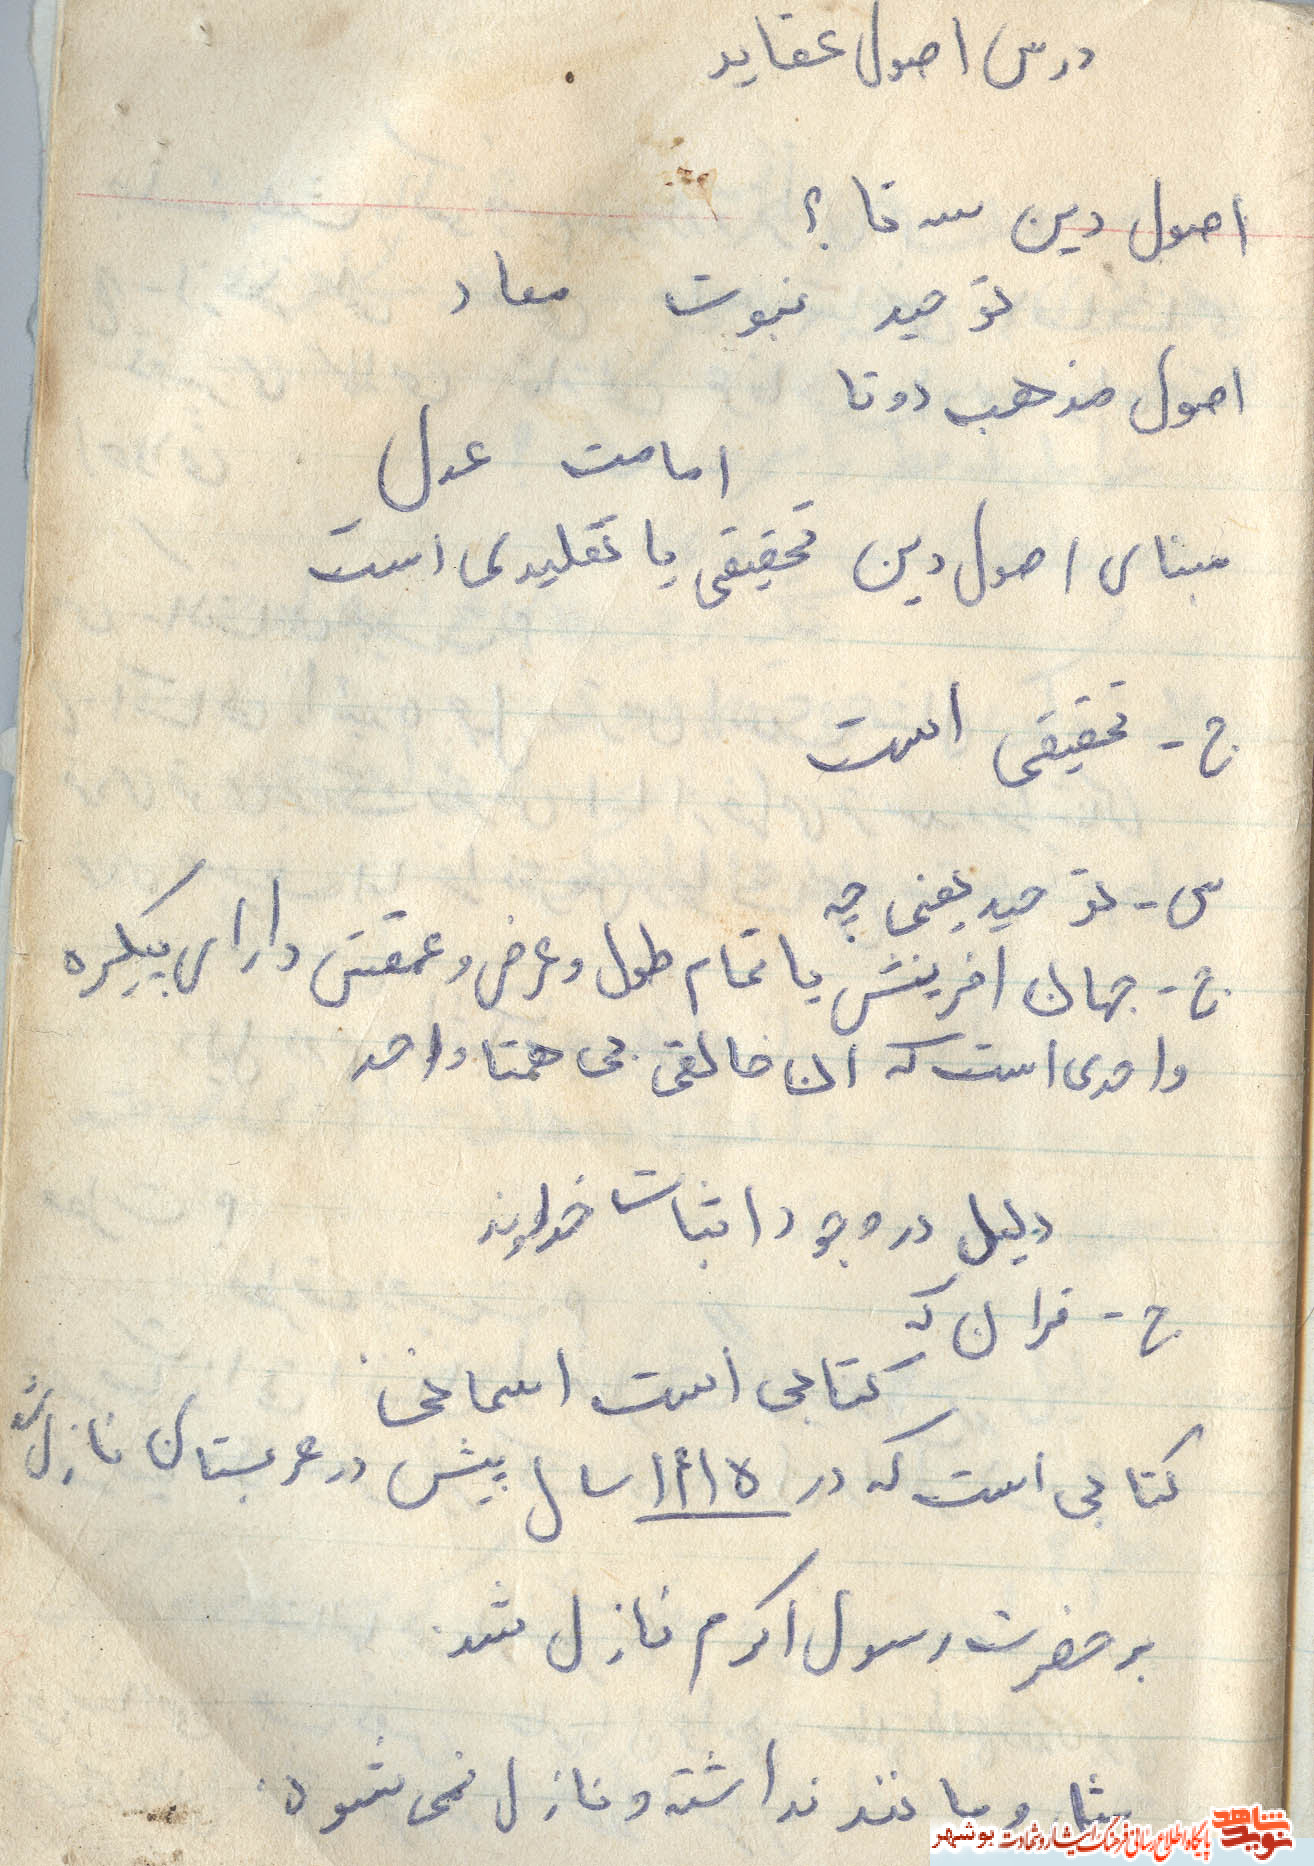 درس اصول عقاید
اصول دین سه تا ؟
توحید نبوت معاد
اصول مذهب دوتا
امامت عدل
مبنای اصول دین تحقیقی یا تقلیدی است
ج - تحقیقی است
س - توحید یعنی چه
ج - جهان افرینش با تمام طول و عرض و عمقش دارای پیکره
واحدی است که ان خالقی بی همتا واحد
دلیل در وجود اثبات خداوند
ج - قران که
کتابی است اسمانی
کتابی است که در ۱۴۱۵ سال پیش در عربستان نازل شد
بر حضرت رسول اکرم نازل شد.
مثل و مانند نداشته و نازل نمی شود.
نوید شاهد
پایگاه اطلاع رسانی فرهنگ ایثار و شهادت بوشهر